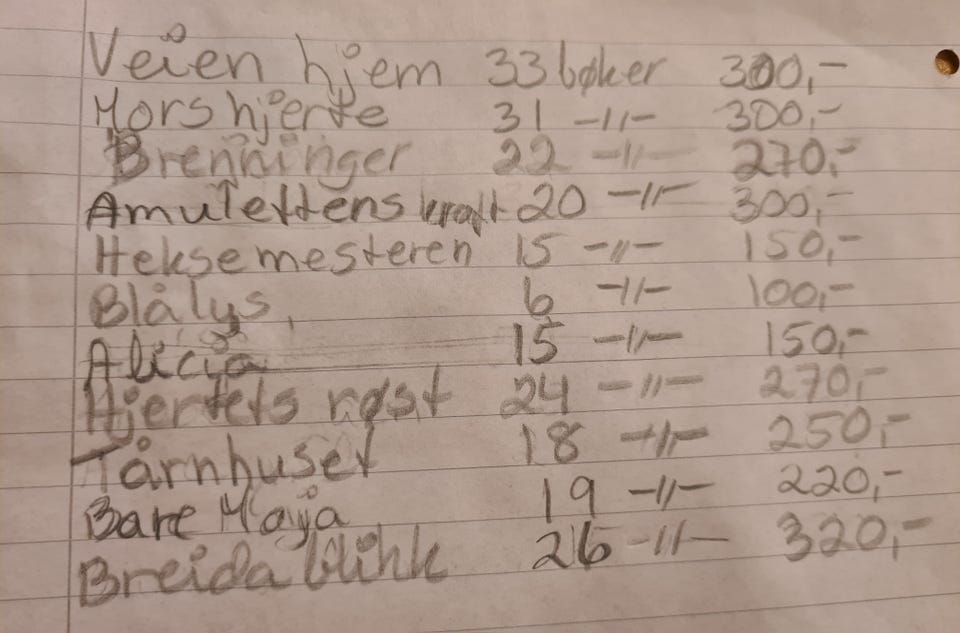 Veien hjem 33 bøker 300,-
Mors hjerte 31 -"- 300,-
Brenninger 22 -"- 270,-
Amulettens kraft 20 -"- 300,-
Heksemesteren 15 -"- 150,-
Blålys, 6 -"- 100,-
Alicia 15 -"- 150,-
Hjertets røst 24 -"- 270,-
Tårnhuset 18 -"- 250,-
Bare Maja 19 -"- 220,-
Breidablikk 26 -"- 320,-